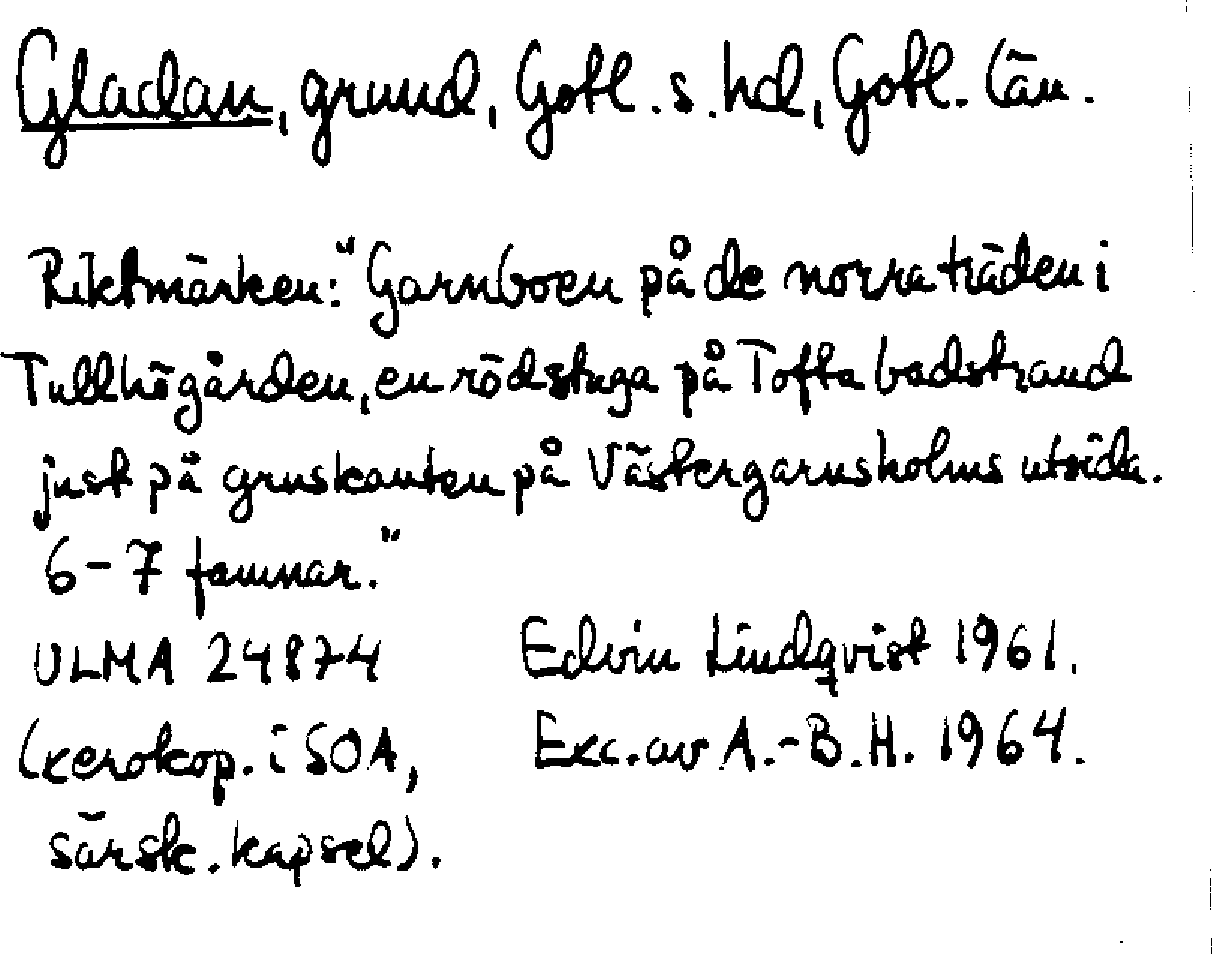 Gladan, grund, Gotl. s. hd, Gotl. län.
Riktmärken: "Garnboen på de norra träden i
Tullhögården, en röd stuga på Tofta badstrand
just på gruskanten på Västergarnsholms utsida.
6-7 famnar."
ULMA 24874 Edvin Lindqvist 1961.
(xerokop. i SOA, Exc. av A.-B. H. 1964.
särsk. kapsel).